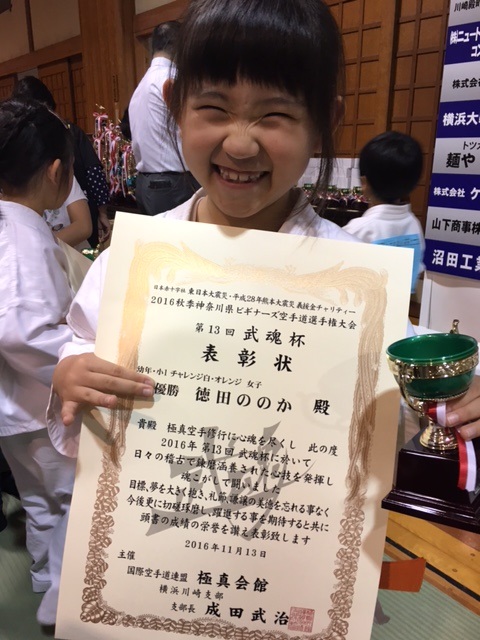 日本赤十字社 東日本大震災・平成28年熊本大震災 義援金チャリティー
2016秋季神奈川県ビギナーズ空手道選手権大会
第13回 武魂杯
表彰状
幼年・小1 チャレンジ白・オレンジ 女子
優勝 徳田ののか 殿
貴殿 極真空手修行に心魂を尽くし 此の度
2016年 第13回 武魂杯に於いて
日々の稽古で錬磨涵養された心技を発揮し
魂こがして闘いました
目標、夢を大きく抱き、礼節、謙譲の美徳を忘れる事なく
今後更に切磋琢磨し、躍進する事を期待すると共に
頭書の成績の栄誉を讃え表彰致します
2016年11月13日
主催
国際空手道連盟 極真会館
横浜川崎支部
支部長 成田武治
川崎
㈱ニュート
コン
株式会社
横浜大
トツ
麺や
株式会社 ケ
山下商事株
沼田工